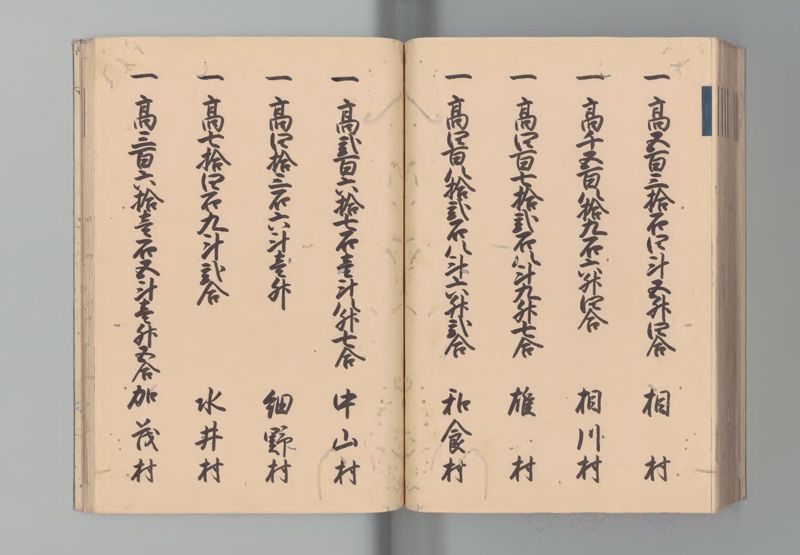 一 高五百三拾石四斗五升四合 相村
一 高千五百八拾九石六升四合 相川村
一 高四百七拾弐石八斗九升七合 雄村
一 高四百八拾弐石八斗六升弐合 和食村
一 高弐百六拾七石壱斗八升七合 中山村
一 高四拾三石六斗壱升 細野村
一 高七拾四石九斗弐合 水井村
一 高三百六拾壱石五斗壱升五合 加茂村